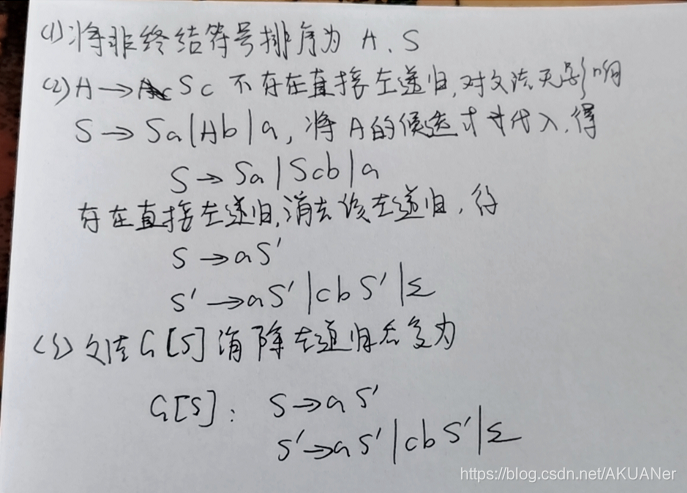 (1)将非终结符号排序为 A、S
(2)A→Sc 不存在直接左递归,对文法无影响
S→Sa|Ab|a,将A的候选式代入,得
S→Sa|Scb|a
存在直接左递归,消去该左递归,得
S→aS'
S'→aS'|cbS'|Σ
(3)文法G[S]消除左递归后变为
G[S]: S→aS'
S'→aS'|cbS'|Σ
https://blog.csdn.net/AKUANer